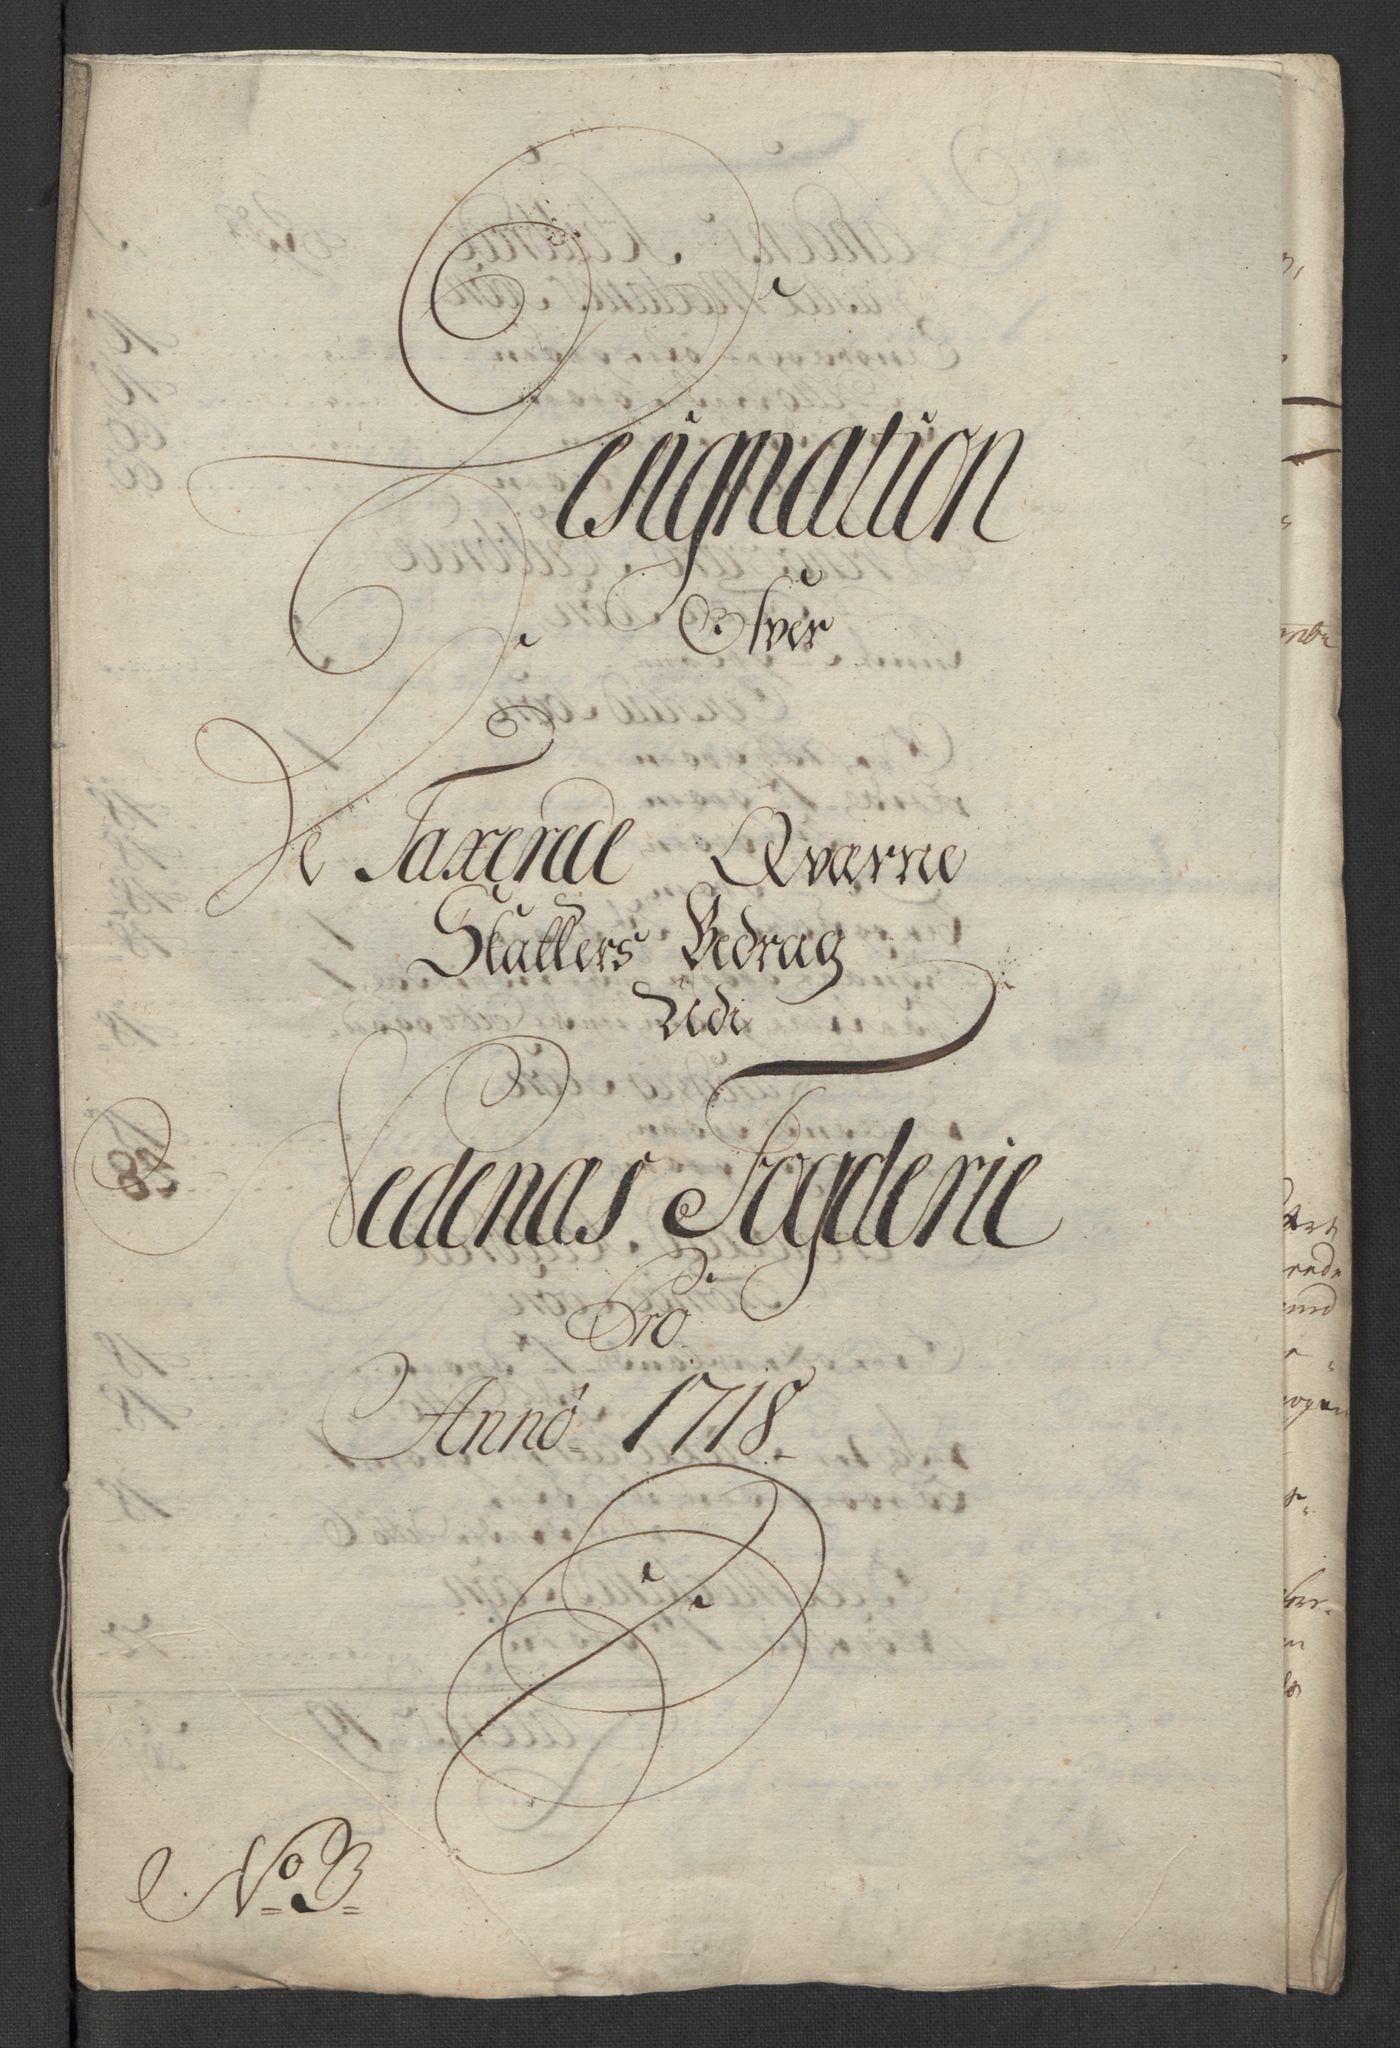 Designation
Ofver
De Taxerede Qværne
Skatters Bedrag
Udi
Nedenæs Fogderie
Pro
Anno 1718
No. 3